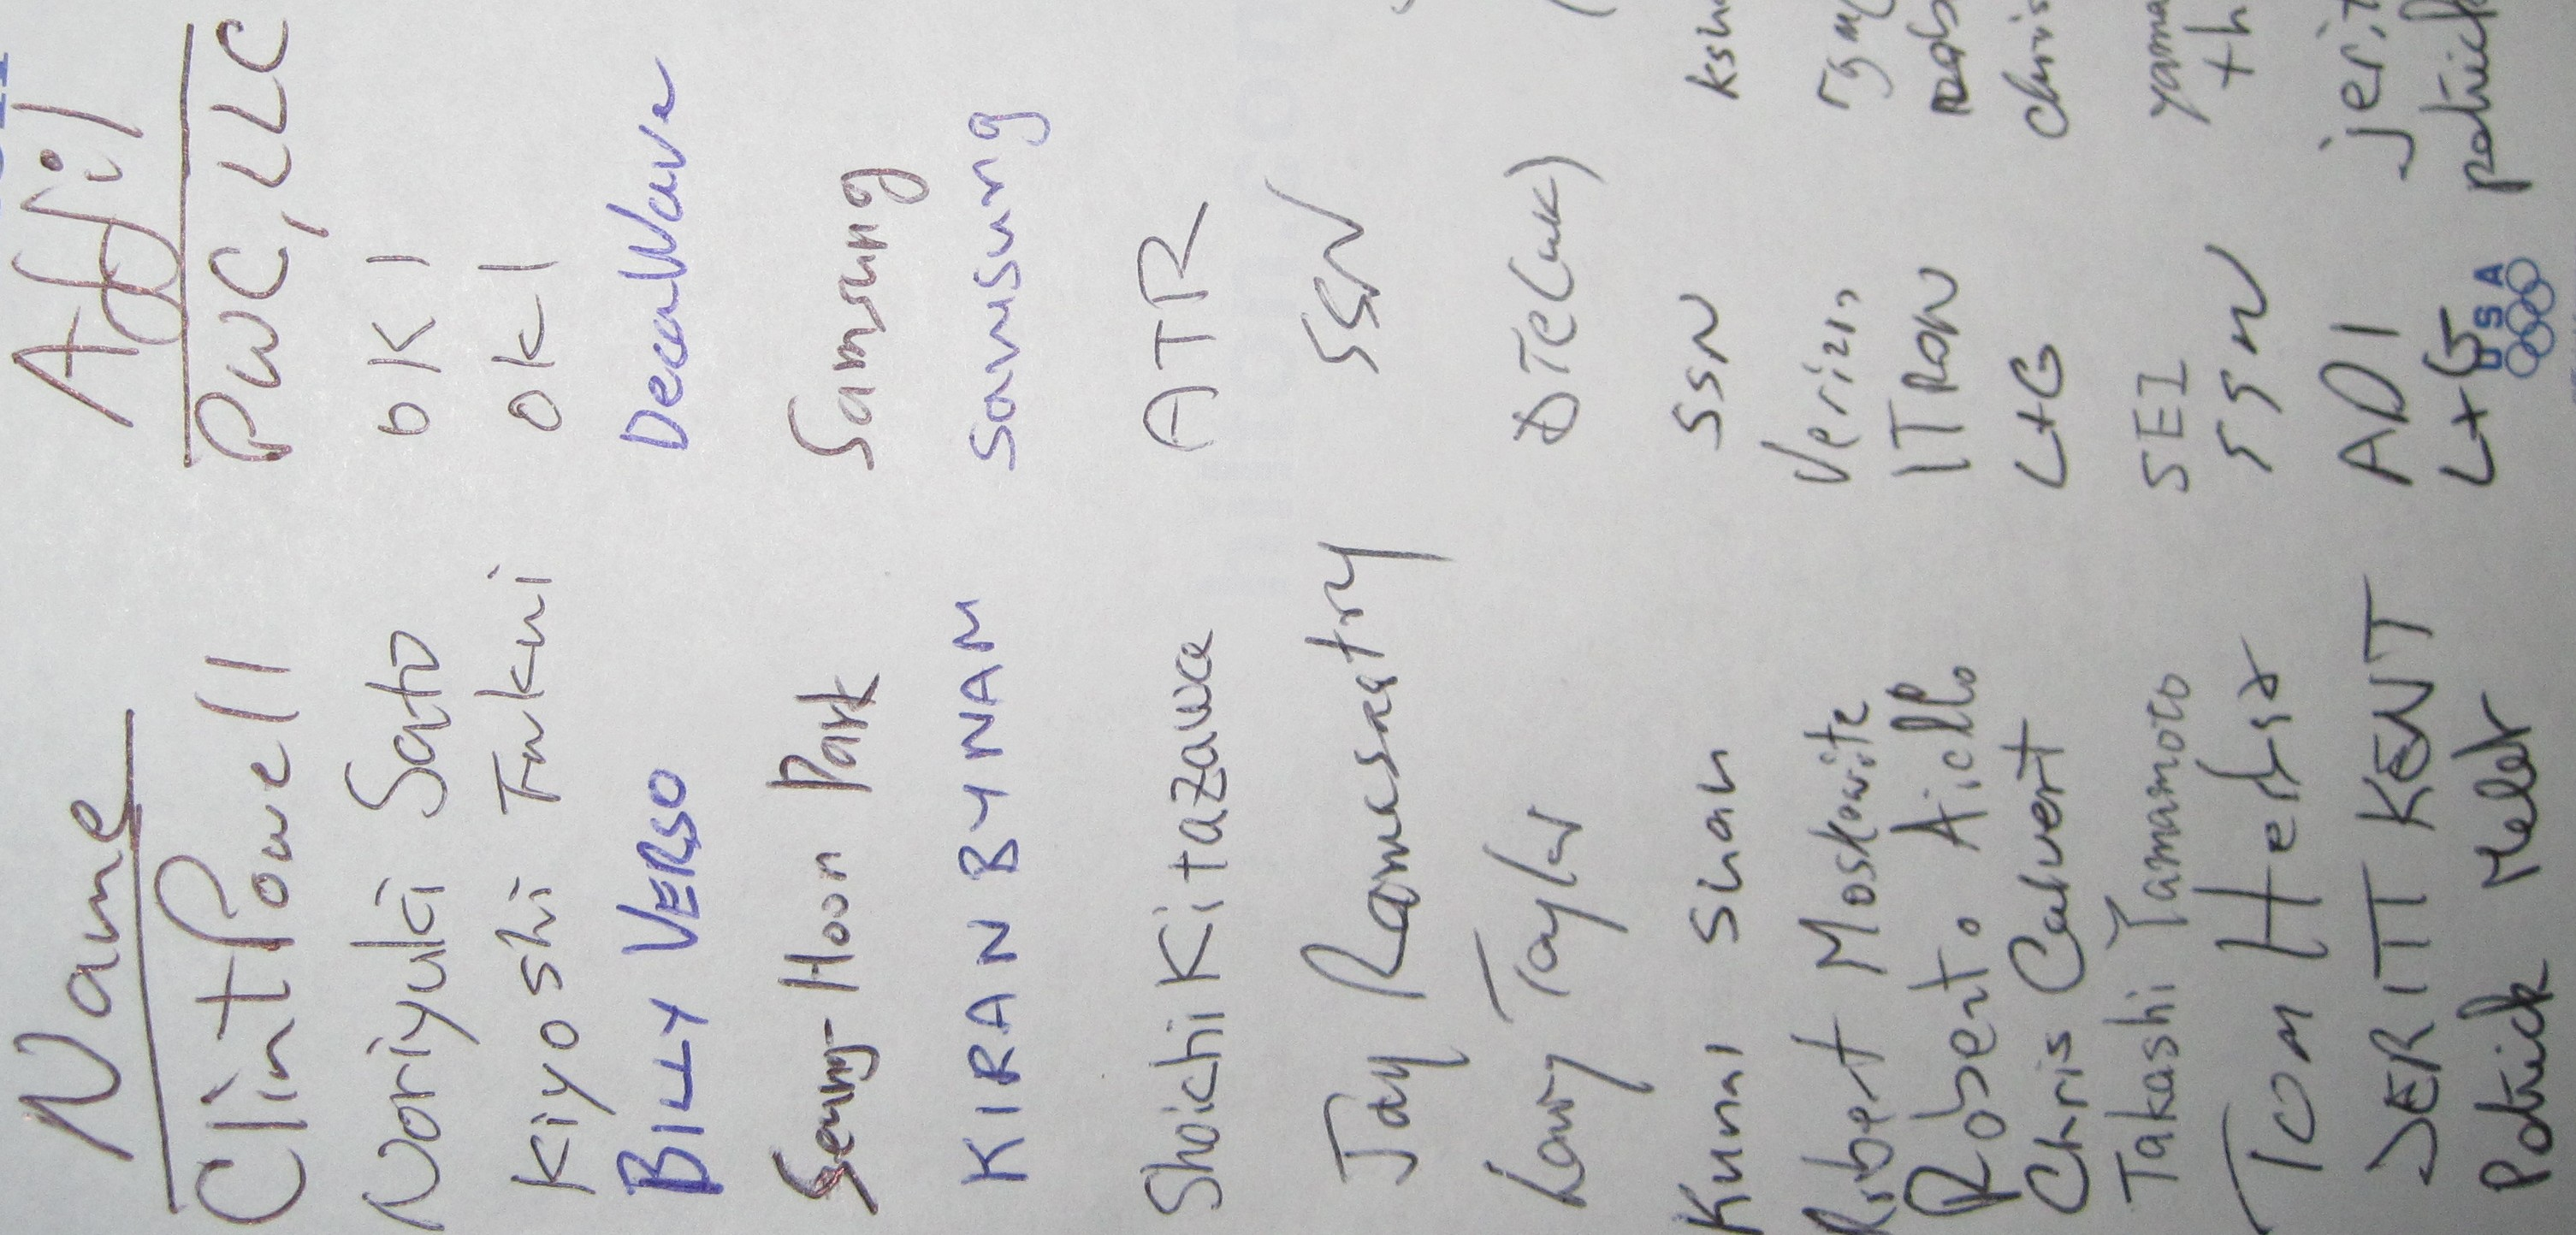 Name Affil
Clint Powell PWC, LLC
Noriyuki Sato OKI
Kiyoshi Fukui OKI
BILLY VERSO DecaWave
Seung-Hoon Park Samsung
KIRAN BYNAM Samsung
Shoichi Kitazawa ATR
Jay Ramasastry SSN
Larry Taylor DTC (UK)
Kunal Shah SSN ksh
Robert Moskowitz Verizon rgm
Roberto Aiello ITRON
Chris Calvert L+G chris
Takashi Yamamoto SEI yama
Tom Herbst SSN th
JERITT KENT ADI jerit
Patrick L+G patrick
USA